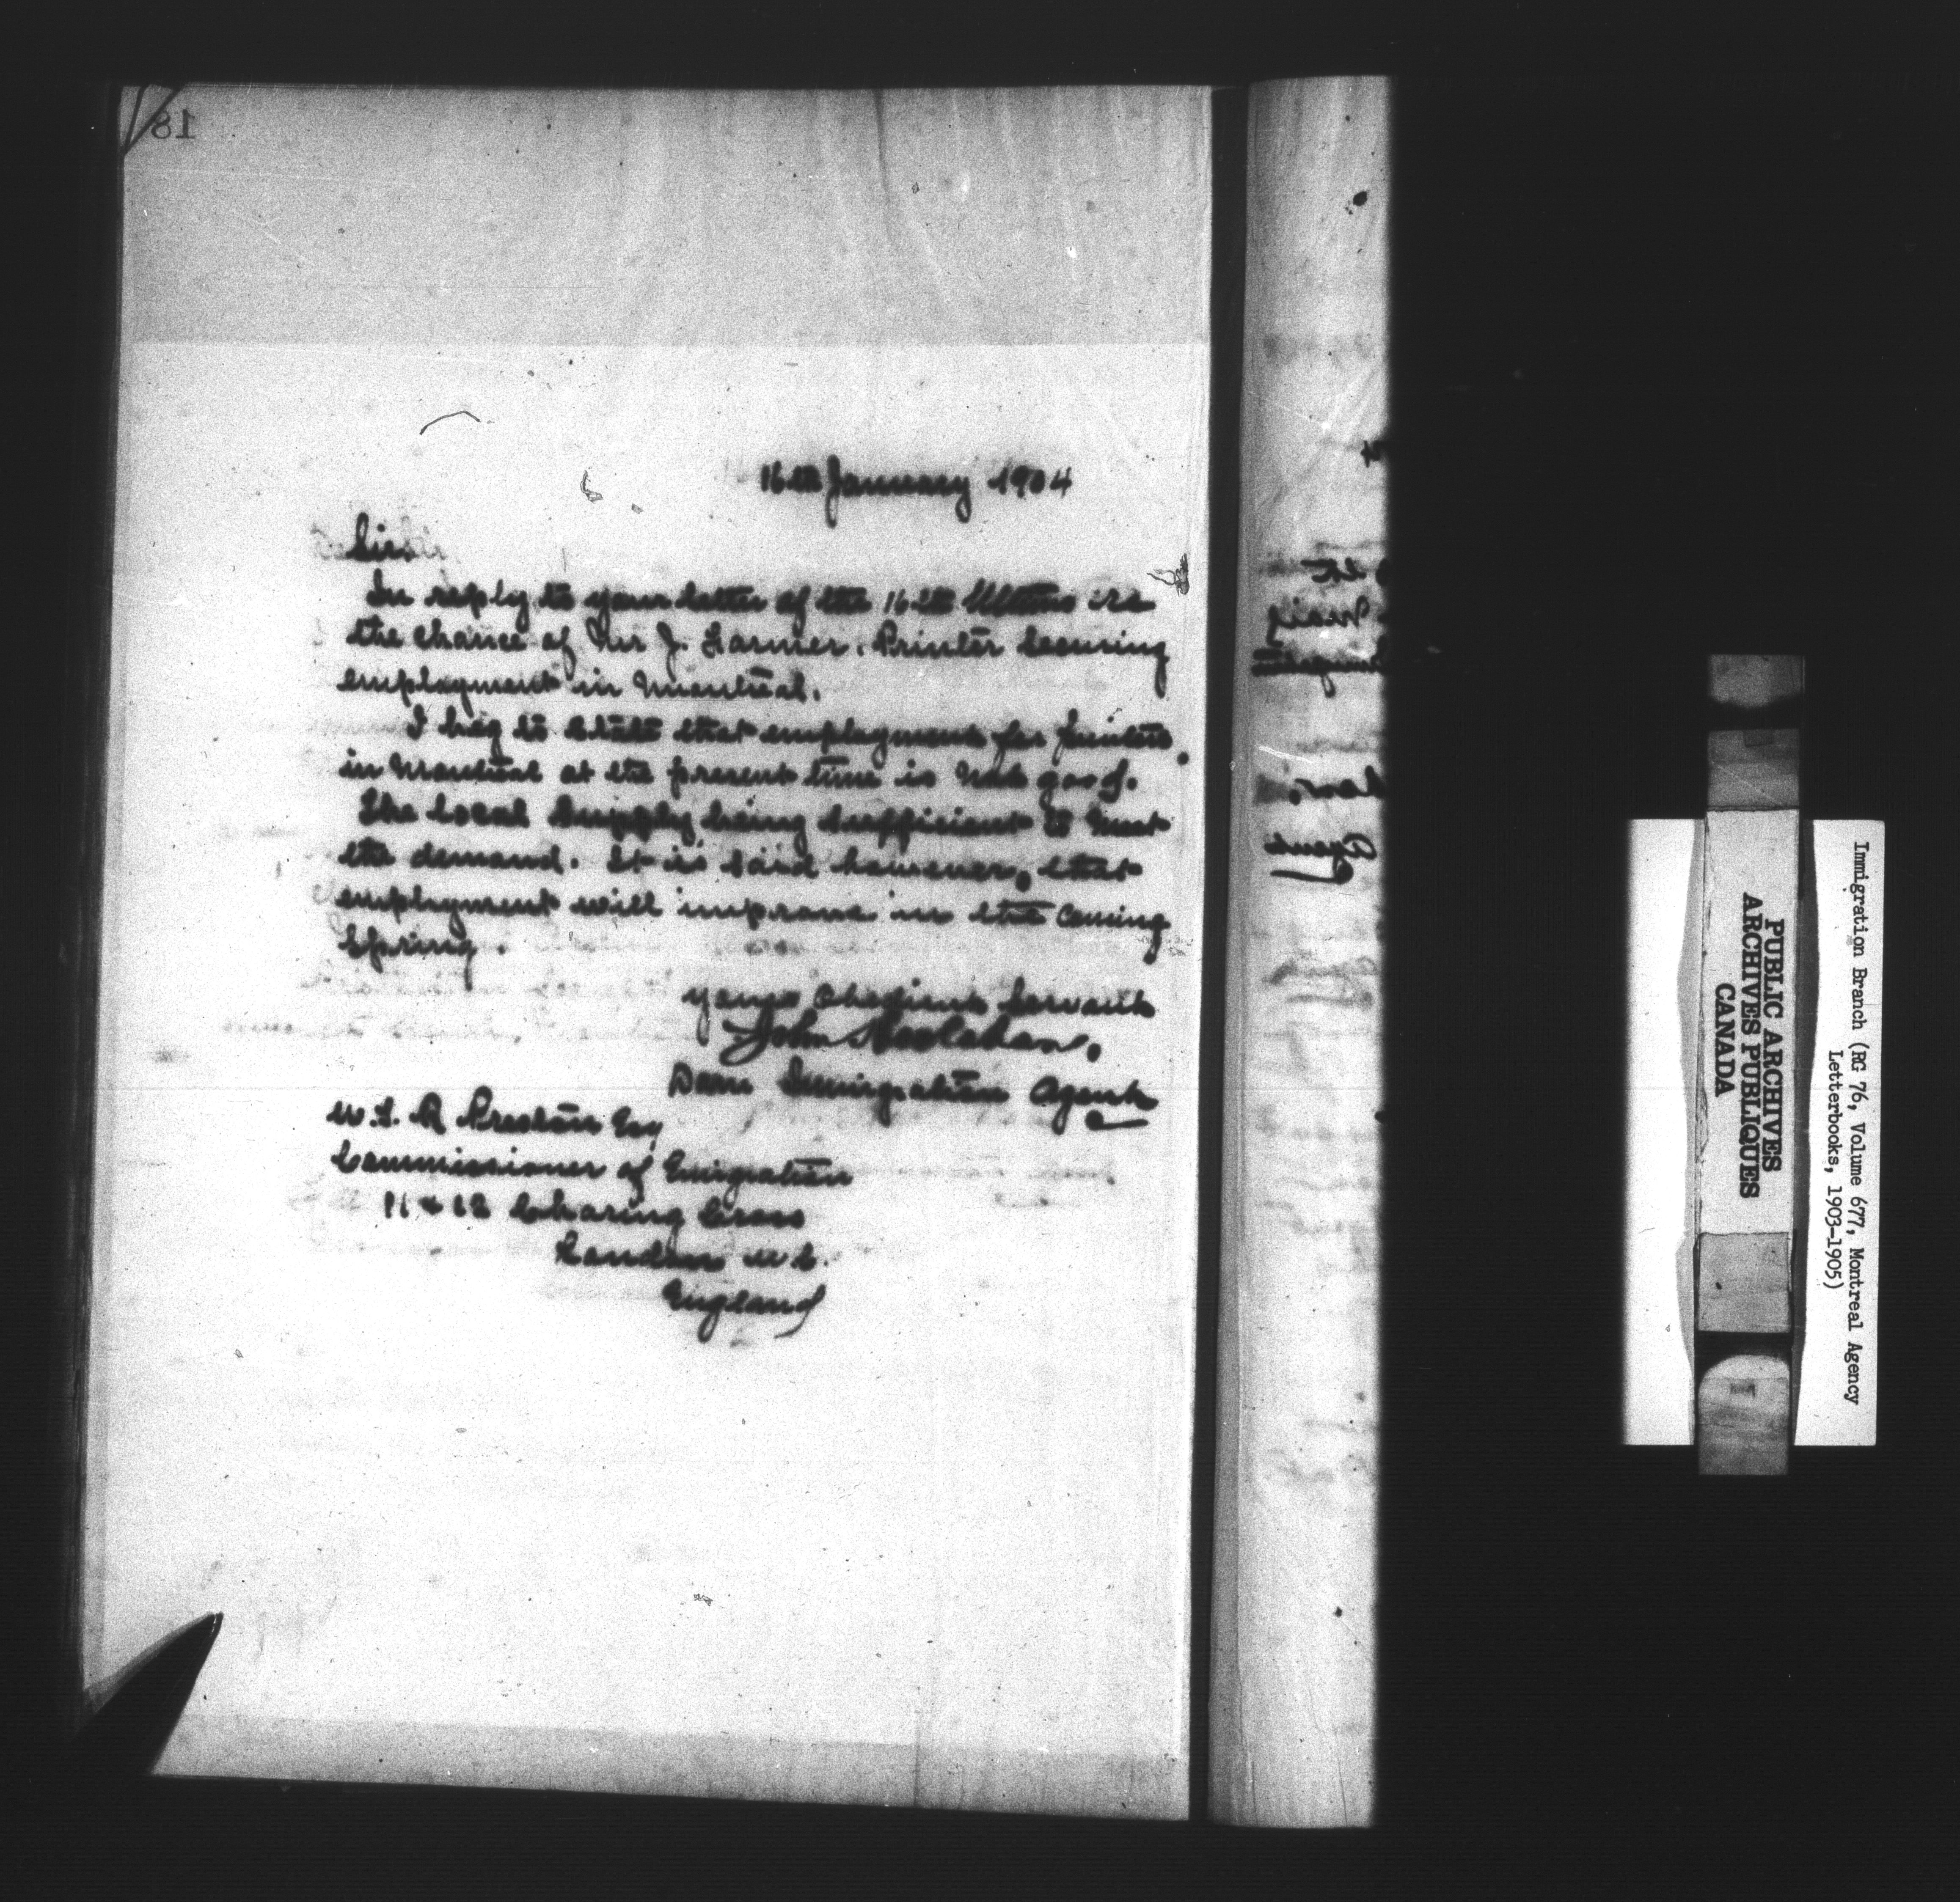 18
16th January 1904
Sir.
In reply to your letter of the 16th Ultimo re
the chance of Mr J. Farmer. Printer securing
employment in Montreal.
I beg to state that employment for printers
in Montreal at the present time is not good.
The local supply being sufficient to meet
the demand. It is said however, that
employment will improve in the coming
Spring.
Your Obedient Servant
John Hoolahan.
Dom Immigration Agent
W. T. R Preston Esq
Commissioner of Emigration
11 & 12 Charing Cross
London W C.
England
Agent
Immigration Branch (RG 76, Volume 677, Montreal Agency
Letterbooks, 1903-1905)
PUBLIC ARCHIVES
ARCHIVES PUBLIQUES
CANADA